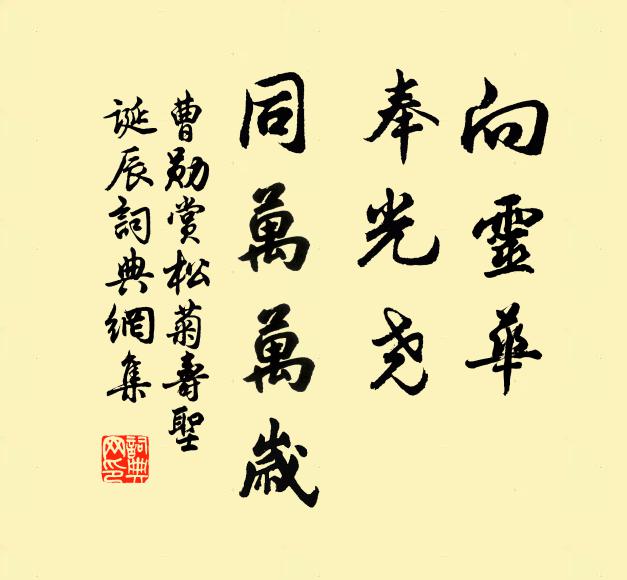 向靈華
奉光尧
同萬萬歲
曹勋賞松菊壽聖
誕辰詞典網集
詞典
网印